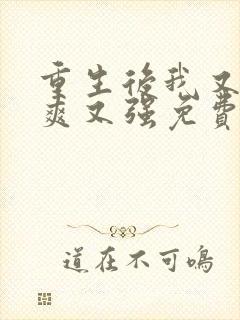 重生后我又
爽又强免费
道在不可鸣